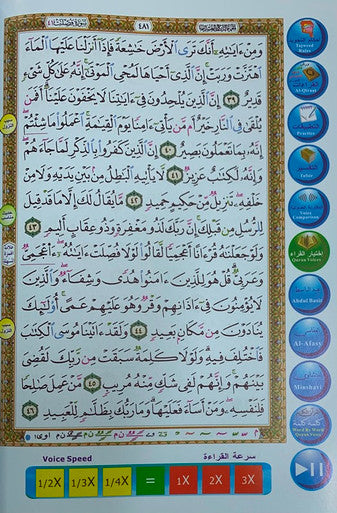 سورة فصلت ٤١
٤٨١
وَمِنْ ءَايَٰتِهِۦٓ أَنَّكَ تَرَى ٱلْأَرْضَ خَٰشِعَةً فَإِذَآ أَنزَلْنَا عَلَيْهَا ٱلْمَآءَ
ٱهْتَزَّتْ وَرَبَتْ إِنَّ ٱلَّذِىٓ أَحْيَاهَا لَمُحْىِ ٱلْمَوْتَىٰٓ إِنَّهُۥ عَلَىٰ كُلِّ شَىْءٍ
قَدِيرٌ ٣٩ إِنَّ ٱلَّذِينَ يُلْحِدُونَ فِىٓ ءَايَٰتِنَا لَا يَخْفَوْنَ عَلَيْنَآ أَفَمَن
يُلْقَىٰ فِى ٱلنَّارِ خَيْرٌ أَم مَّن يَأْتِىٓ ءَامِنًا يَوْمَ ٱلْقِيَٰمَةِ ٱعْمَلُوا۟ مَا شِئْتُمْ
إِنَّهُۥ بِمَا تَعْمَلُونَ بَصِيرٌ ٤٠ إِنَّ ٱلَّذِينَ كَفَرُوا۟ بِٱلذِّكْرِ لَمَّا جَآءَهُمْ
وَإِنَّهُۥ لَكِتَٰبٌ عَزِيزٌ ٤١ لَّا يَأْتِيهِ ٱلْبَٰطِلُ مِنۢ بَيْنِ يَدَيْهِ وَلَا مِنْ
خَلْفِهِۦ تَنزِيلٌ مِّنْ حَكِيمٍ حَمِيدٍ ٤٢ مَّا يُقَالُ لَكَ إِلَّا مَا قَدْ قِيلَ
لِلرُّسُلِ مِن قَبْلِكَ إِنَّ رَبَّكَ لَذُو مَغْفِرَةٍ وَذُو عِقَابٍ أَلِيمٍ ٤٣
وَلَوْ جَعَلْنَٰهُ قُرْءَانًا أَعْجَمِيًّا لَّقَالُوا۟ لَوْلَا فُصِّلَتْ ءَايَٰتُهُۥٓ ءَا۬عْجَمِىٌّ
وَعَرَبِىٌّ قُلْ هُوَ لِلَّذِينَ ءَامَنُوا۟ هُدًى وَشِفَآءٌ وَٱلَّذِينَ
لَا يُؤْمِنُونَ فِىٓ ءَاذَانِهِمْ وَقْرٌ وَهُوَ عَلَيْهِمْ عَمًى أُو۟لَٰٓئِكَ
يُنَادَوْنَ مِن مَّكَانٍۭ بَعِيدٍ ٤٤ وَلَقَدْ ءَاتَيْنَا مُوسَى ٱلْكِتَٰبَ
فَٱخْتُلِفَ فِيهِ وَلَوْلَا كَلِمَةٌ سَبَقَتْ مِن رَّبِّكَ لَقُضِىَ
بَيْنَهُمْ وَإِنَّهُمْ لَفِى شَكٍّ مِّنْهُ مُرِيبٍ ٤٥ مَّنْ عَمِلَ صَٰلِحًا
فَلِنَفْسِهِۦ وَمَنْ أَسَآءَ فَعَلَيْهَا وَمَا رَبُّكَ بِظَلَّٰمٍ لِّلْعَبِيدِ ٤٦
Tajweed
Rules
Al-Qiraat
Practice
Table
Voice
Comparison
إختيار القراء
Quran Voices
Abdul Basit
Al-Afasy
Minshavi
كلمة كلمة
Word By Word
Quran Voice
Voice Speed
سرعة القراءة
1/2X
1/3X
1/4X
=
1X
2X
3X